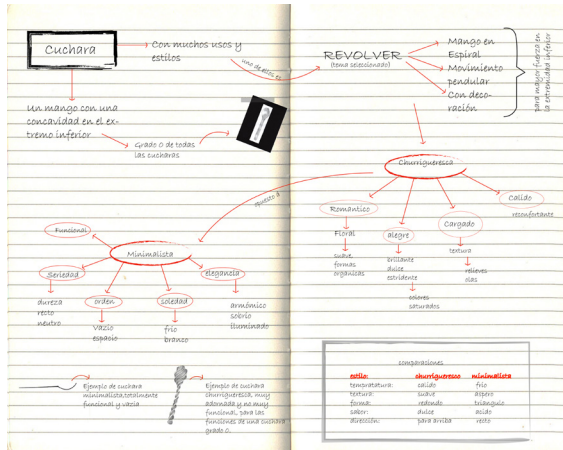 Cuchara
Con muchos usos y
estilos
uno de ellos es
REVOLVER
(tema seleccionado)
Mango en
Espiral
Movimiento
pendular
Con deco-
ración
para mayor fuerza en
la extremidad inferior
Un mango con una
concavidad en el ex-
tremo inferior
Grado 0 de todas
las cucharas
Churrigueresca
opuesto a
Romantico
Floral
suave
formas
organicas
alegre
brillante
dulce
estridente
colores
saturados
Cargado
textura
relieves
olas
Calido
reconfortante
Minimalista
Funcional
Seriedad
dureza
recto
neutro
orden
vazio
espacio
soledad
frio
branco
elegancia
armómico
sobrio
iluminado
Ejemplo de cuchara
minimalista,totalmente
funcional y vazia
Ejemplo de cuchara
churrigueresca, muy
adornada y no muy
funcional, para las
funciones de una cuchara
grado 0.
comparaciones
estilo: churrigueresco minimalista
tempratatura: calido frio
textura: suave aspero
forma: redondo triangulo
sabor: dulce acido
dirección: para arriba recto